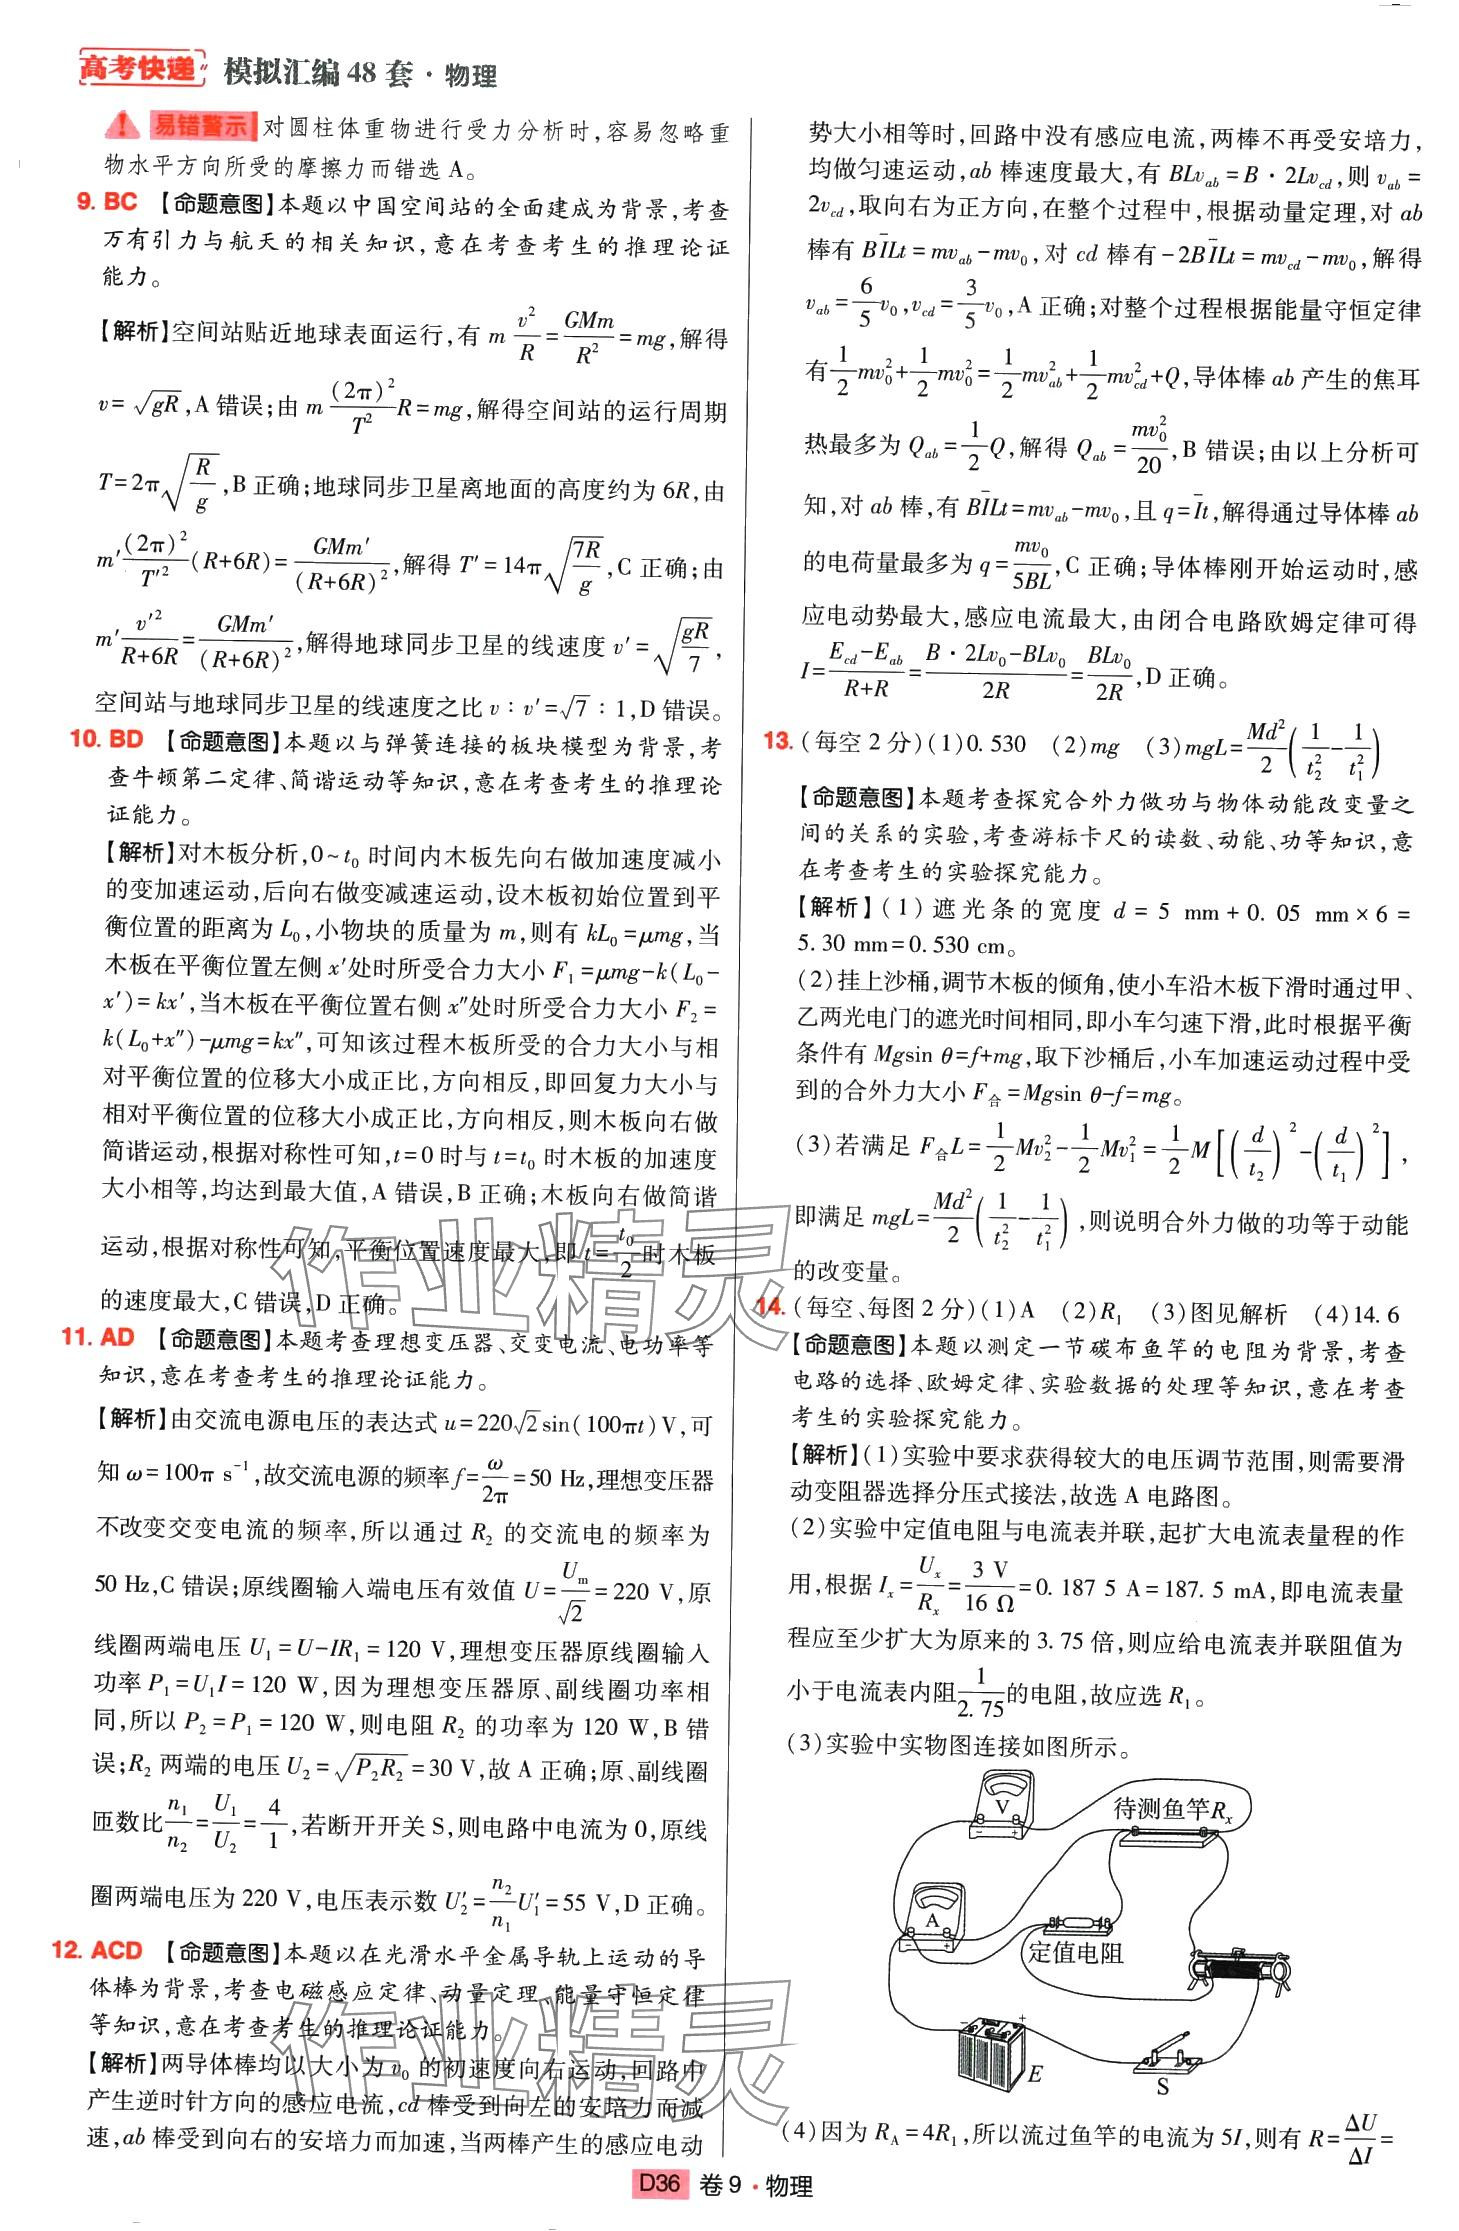 高考快递 模拟汇编48套·物理
易错警示 对圆柱体重物进行受力分析时,容易忽略重
物水平方向所受的摩擦力而错选A。
9. BC 【命题意图】本题以中国空间站的全面建成为背景,考查
万有引力与航天的相关知识,意在考查考生的推理论证
能力。
【解析】空间站贴近地球表面运行,有 m v²/R = GMm/R² = mg,解得
v=√(gR),A错误;由 m (2π)²/T² R=mg,解得空间站的运行周期
T=2π√(R/g),B正确;地球同步卫星离地面的高度约为6R,由
m′(2π)²/T′²(R+6R)=GMm′/(R+6R)²,解得 T′=14π√(7R/g),C正确;由
m′v′²/(R+6R)=GMm′/(R+6R)²,解得地球同步卫星的线速度 v′=√(gR/7),
空间站与地球同步卫星的线速度之比 v∶v′=√7∶1,D错误。
10. BD 【命题意图】本题以与弹簧连接的板块模型为背景,考
查牛顿第二定律、简谐运动等知识,意在考查考生的推理论
证能力。
【解析】对木板分析,0~t₀时间内木板先向右做加速度减小
的变加速运动,后向右做变减速运动,设木板初始位置到平
衡位置的距离为L₀,小物块的质量为m,则有kL₀=μmg,当
木板在平衡位置左侧x′处时所受合力大小F₁=μmg-k(L₀-
x′)=kx′,当木板在平衡位置右侧x″处时所受合力大小F₂=
k(L₀+x″)-μmg=kx″,可知该过程木板所受的合力大小与相
对平衡位置的位移大小成正比,方向相反,即回复力大小与
相对平衡位置的位移大小成正比,方向相反,则木板向右做
简谐运动,根据对称性可知,t=0时与t=t₀时木板的加速度
大小相等,均达到最大值,A错误,B正确;木板向右做简谐
运动,根据对称性可知,平衡位置速度最大,即t=t₀/2时木板
的速度最大,C错误,D正确。
11. AD 【命题意图】本题考查理想变压器、交变电流、电功率等
知识,意在考查考生的推理论证能力。
【解析】由交流电源电压的表达式u=220√2sin(100πt)V,可
知ω=100π s⁻¹,故交流电源的频率f=ω/2π=50 Hz,理想变压器
不改变交变电流的频率,所以通过R₂的交流电的频率为
50 Hz,C错误;原线圈输入端电压有效值U=Uₘ/√2=220 V,原
线圈两端电压U₁=U-IR₁=120 V,理想变压器原线圈输入
功率P₁=U₁I=120 W,因为理想变压器原、副线圈功率相
同,所以P₂=P₁=120 W,则电阻R₂的功率为120 W,B错
误;R₂两端的电压U₂=√(P₂R₂)=30 V,故A正确;原、副线圈
匝数比n₁/n₂=U₁/U₂=4/1,若断开开关S,则电路中电流为0,原线
圈两端电压为220 V,电压表示数U₂′=n₂/n₁U₁′=55 V,D正确。
12. ACD 【命题意图】本题以在光滑水平金属导轨上运动的导
体棒为背景,考查电磁感应定律、动量定理、能量守恒定律
等知识,意在考查考生的推理论证能力。
【解析】两导体棒均以大小为v₀的初速度向右运动,回路中
产生逆时针方向的感应电流,cd棒受到向左的安培力而减
速,ab棒受到向右的安培力而加速,当两棒产生的感应电动
势大小相等时,回路中没有感应电流,两棒不再受安培力,
均做匀速运动,ab棒速度最大,有BLv_ab=B·2Lv_cd,则v_ab=
2v_cd,取向右为正方向,在整个过程中,根据动量定理,对ab
棒有BĪLt=mv_ab-mv₀,对cd棒有-2BĪLt=mv_cd-mv₀,解得
v_ab=6/5v₀,v_cd=3/5v₀,A正确;对整个过程根据能量守恒定律
有1/2mv₀²+1/2mv₀²=1/2mv_ab²+1/2mv_cd²+Q,导体棒ab产生的焦耳
热最多为Q_ab=1/2Q,解得Q_ab=mv₀²/20,B错误;由以上分析可
知,对ab棒,有BĪLt=mv_ab-mv₀,且q=Īt,解得通过导体棒ab
的电荷量最多为q=mv₀/5BL,C正确;导体棒刚开始运动时,感
应电动势最大,感应电流最大,由闭合电路欧姆定律可得
I=(E_cd-E_ab)/(R+R)=(B·2Lv₀-BLv₀)/2R=BLv₀/2R,D正确。
13. (每空2分)(1)0.530 (2)mg (3)mgL=Md²/2(1/t₂²-1/t₁²)
【命题意图】本题考查探究合外力做功与物体动能改变量之
间的关系的实验,考查游标卡尺的读数、动能、功等知识,意
在考查考生的实验探究能力。
【解析】(1)遮光条的宽度d=5 mm+0.05 mm×6=
5.30 mm=0.530 cm。
(2)挂上沙桶,调节木板的倾角,使小车沿木板下滑时通过甲、
乙两光电门的遮光时间相同,即小车匀速下滑,此时根据平衡
条件有Mgsin θ=f+mg,取下沙桶后,小车加速运动过程中受
到的合外力大小F合=Mgsin θ-f=mg。
(3)若满足F合L=1/2Mv₂²-1/2Mv₁²=1/2M[(d/t₂)²-(d/t₁)²],
即满足mgL=Md²/2(1/t₂²-1/t₁²),则说明合外力做的功等于动能
的改变量。
14. (每空、每图2分)(1)A (2)R₁ (3)图见解析 (4)14.6
【命题意图】本题以测定一节碳布鱼竿的电阻为背景,考查
电路的选择、欧姆定律、实验数据的处理等知识,意在考查
考生的实验探究能力。
【解析】(1)实验中要求获得较大的电压调节范围,则需要滑
动变阻器选择分压式接法,故选A电路图。
(2)实验中定值电阻与电流表并联,起扩大电流表量程的作
用,根据Iₓ=Uₓ/Rₓ=3 V/16 Ω=0.187 5 A=187.5 mA,即电流表量
程应至少扩大为原来的3.75倍,则应给电流表并联阻值为
小于电流表内阻1/2.75的电阻,故应选R₁。
(3)实验中实物图连接如图所示。
V
待测鱼竿Rₓ
A
定值电阻
E
S
(4)因为R_A=4R₁,所以流过鱼竿的电流为5I,则有R=ΔU/ΔI=
D36 卷9·物理
作业精灵
作业精灵